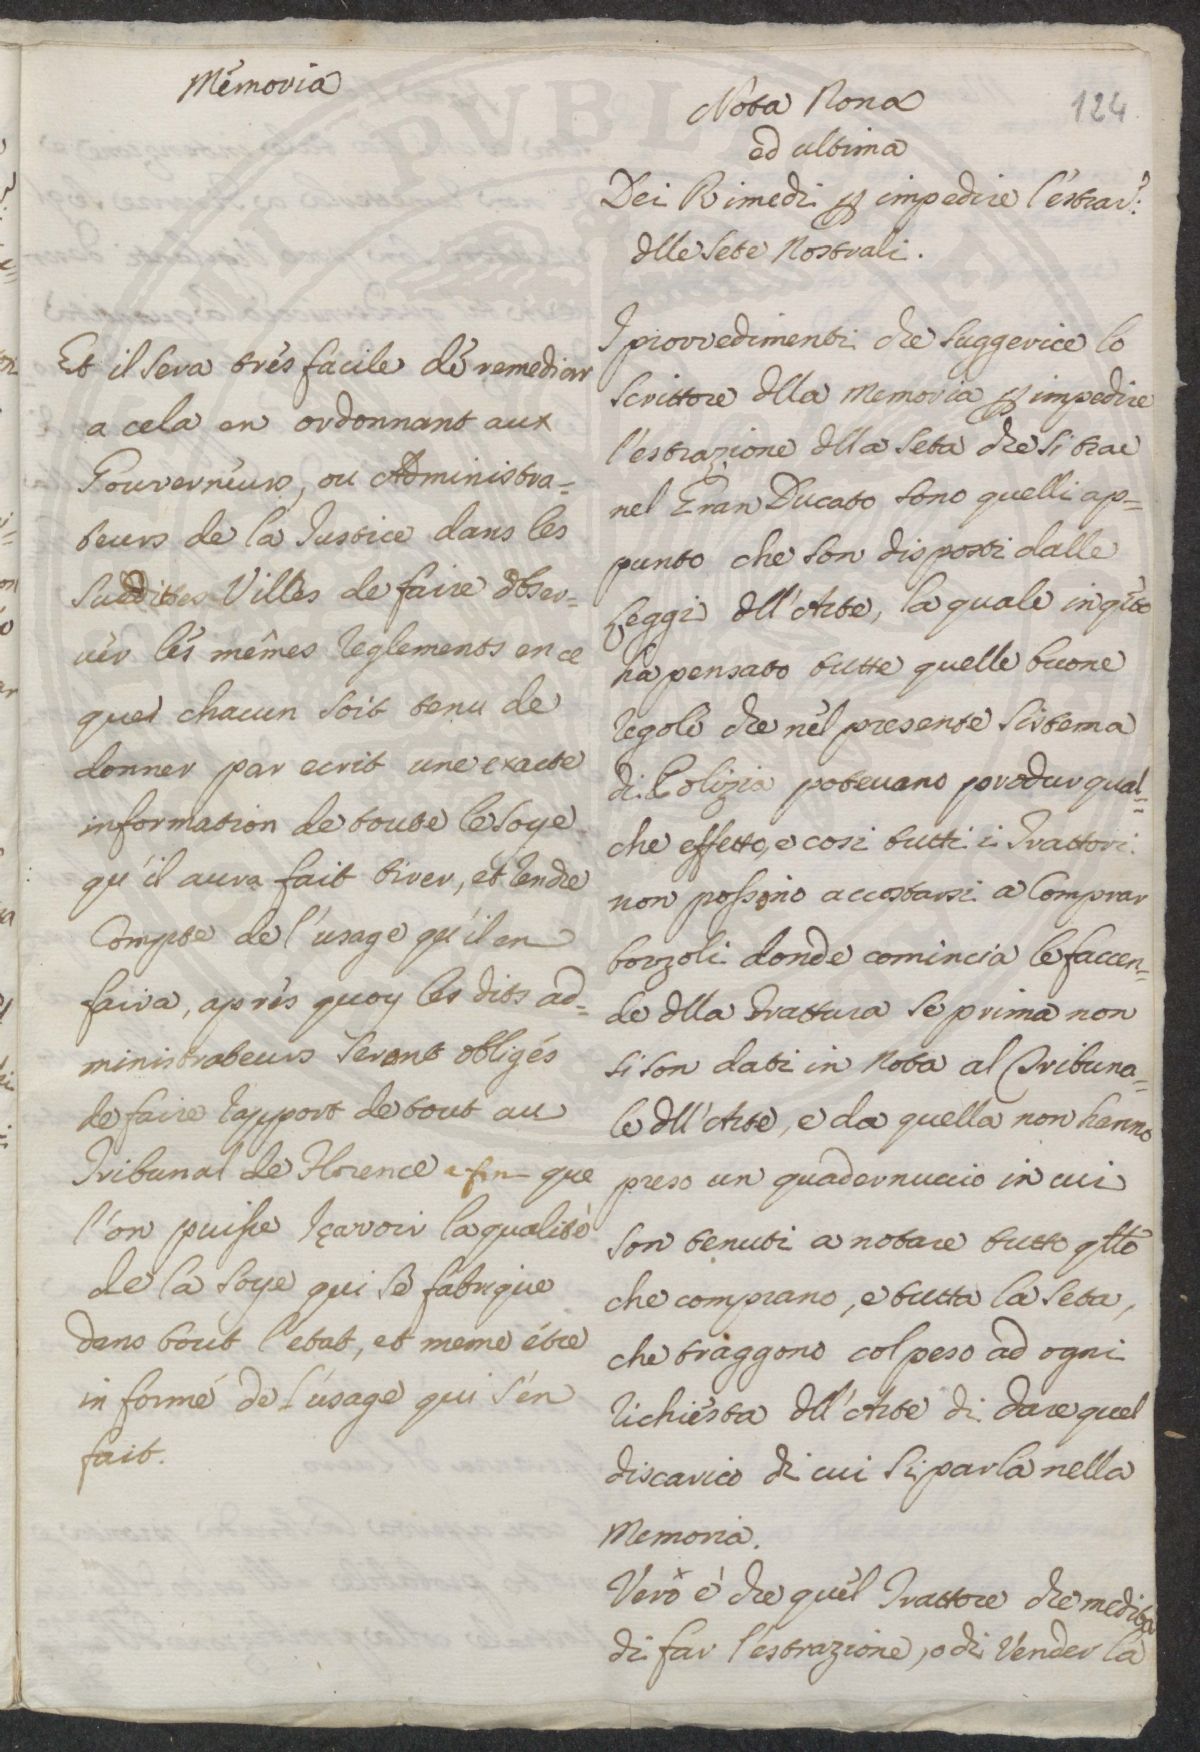 Mémoria
Et il sera très facile de remedier
a cela en ordonnant aux
Gouverneurs, ou Administra=
teurs de la Justice dans les
Suddites Villes de faire obser=
vèr lés mêmes reglements en ce
que chacun soit tenu de
donner par ecrit une exacte
information de toute le Soye
qu'il aura fait tirer, et rendre
Compte de l'usage qu'il en
faira, après quoy les dits ad=
ministrateurs seront obligés
de faire rapport de tout au
Tribunal de Florence afin que
l'on puisse sçavoir la qualité
de la Soye qui se fabrique
dans tout l'etat, et meme étre
informé de l'usage qui s'én
fait.
124
Nota Nona
ed ultima
Dei Rimedi p impedire l'estraz:
dlle Sete Nostrali.
I provvedimenti che suggerice lo
Scrittore dlla Memoria p impedire
l'estrazione dlla Seta che si trae
nel Gran Ducato sono quelli ap=
punto che son disposti dalle
Leggi dll'Arte, la quale in qto
ha pensato tutte quelle buone
regole che nel presente sistema
di Polizia potevano produr qual=
che effetto, e cosi tutti i Trattori
non possono accostarsi a Comprar
bozzoli donde comincia le faccen=
de dlla Trattura se prima non
si son dati in Nota al Tribuna=
le dll'Arte, e da quella non hanno
preso un quadernuccio in cui
son tenuti a notare tutto qllo
che comprano, e tutta la Seta,
che traggono col peso ad ogni
richiesta dll'Arte di dare quel
discarico di cui si parla nella
Memoria.
Vero è che quel Trattore che medita
di far l'estrazione, o di Vender la